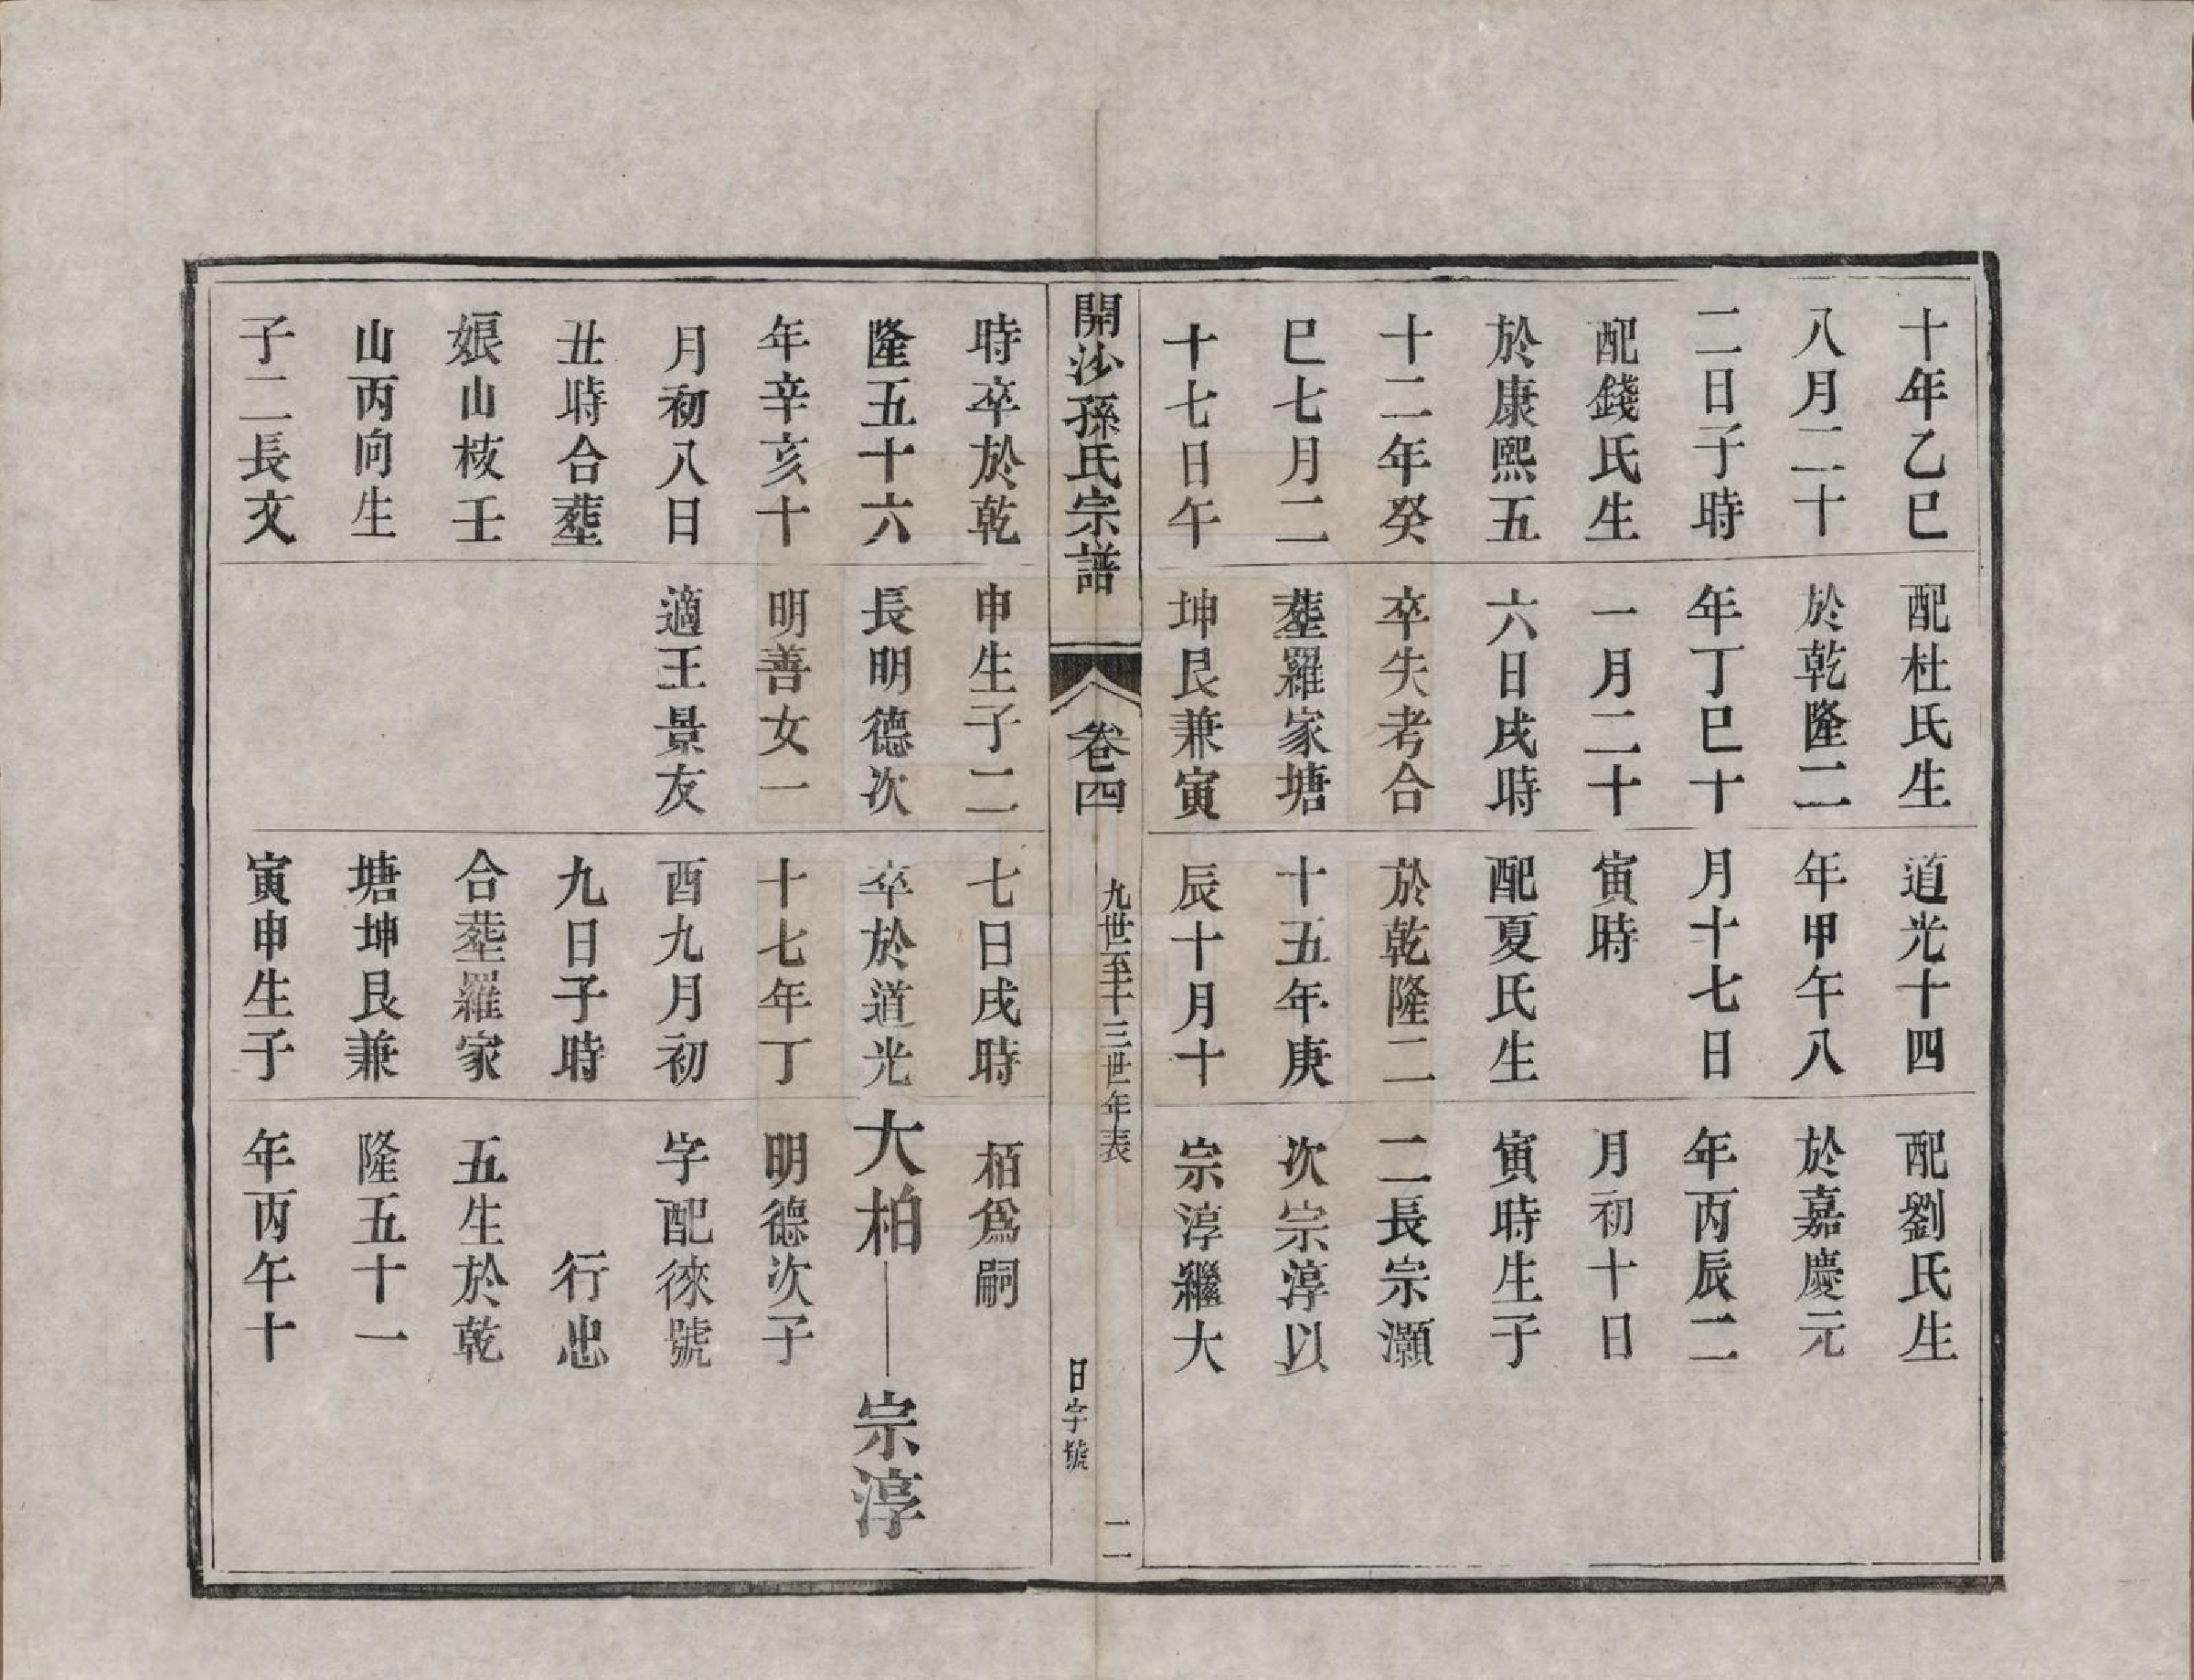 十年乙巳
八月二十
二日子時
配錢氏生
於康熙五
十二年癸
巳七月二
十七日午
配杜氏生
於乾隆二
年丁巳十
一月二十
六日戌時
卒失考合
塟羅家塘
坤艮兼寅
道光十四
年甲午八
月十七日
寅時
配夏氏生
於乾隆二
十五年庚
辰十月十
配劉氏生
於嘉慶元
年丙辰二
月初十日
寅時生子
二長宗灝
次宗淳以
宗淳繼大
開沙孫氏宗譜
卷四
九世至十三世年表
日字號
二
時卒於乾
隆五十六
年辛亥十
月初八日
丑時合塟
娘山枝壬
山丙向生
子二長文
申生子二
長明德次
明善女一
適王景友
七日戌時
卒於道光
十七年丁
酉九月初
九日子時
合塟羅家
塘坤艮兼
寅申生子
栢爲嗣
大柏——宗淳
明德次子
字配徠號
行忠
五生於乾
隆五十一
年丙午十